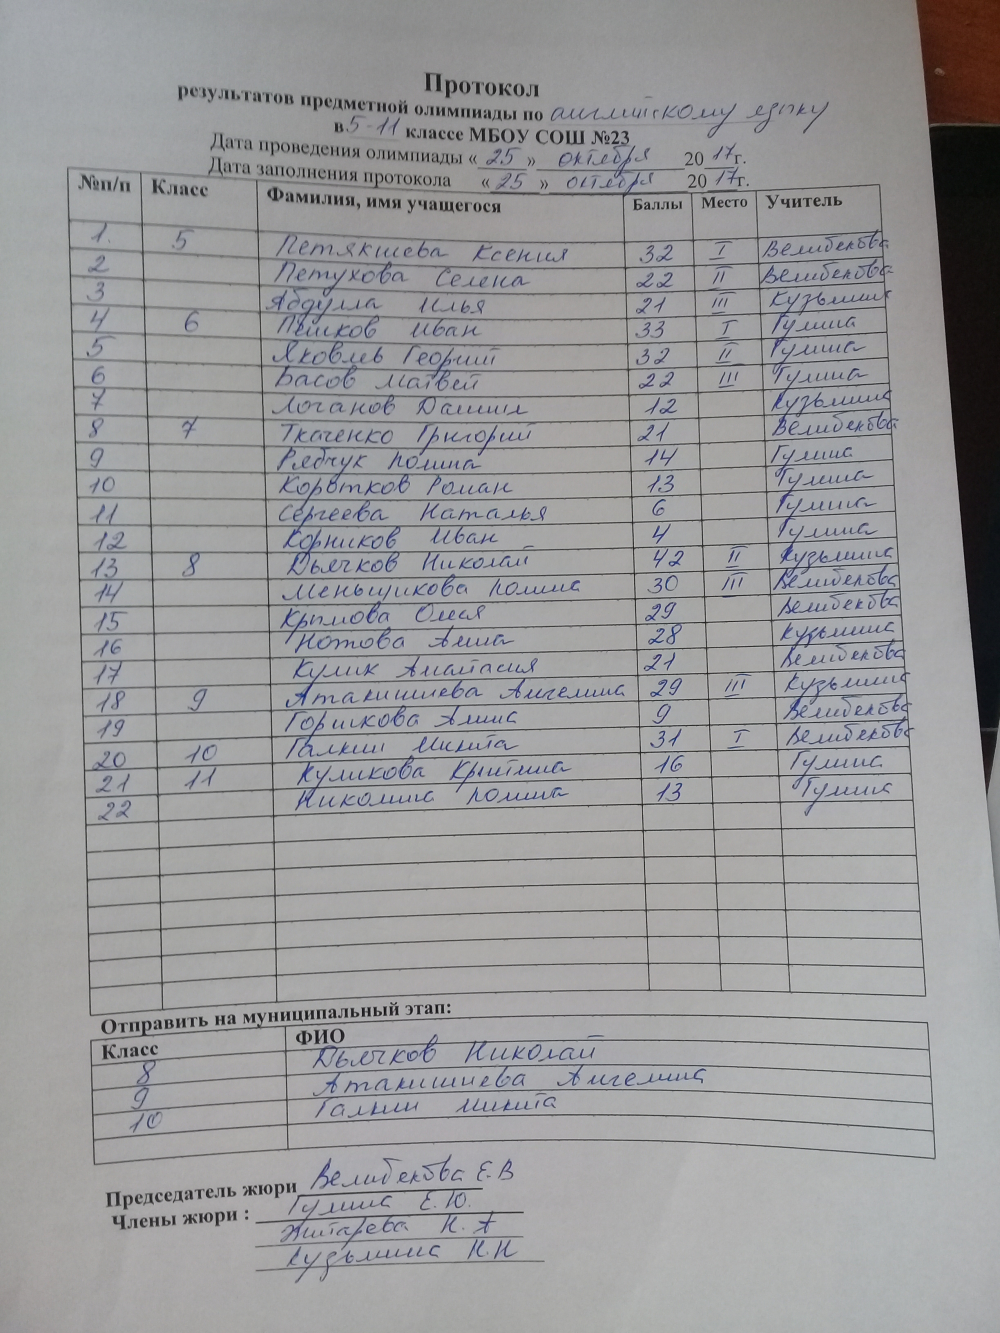 Протокол
результатов предметной олимпиады по английскому языку
в 5-11 классе МБОУ СОШ №23
Дата проведения олимпиады « 25 » октября 20 17 г.
Дата заполнения протокола « 25 » октября 20 17 г.
№п/п Класс Фамилия, имя учащегося Баллы Место Учитель
1. 5 Петякшева Ксения 32 I Велибекова
2 Петухова Селена 22 II Велибекова
3 Абдулла Илья 21 III Кузьмина
4 6 Иван 33 I Гулина
5 Яковлев Георгий 32 II Гулина
6 Басов Матвей 22 III Гулина
7 Логанов Даниил 12 Кузьмина
8 7 Ткаченко Григорий 21 Велибекова
9 Рябчук Полина 14 Гулина
10 Коротков Роман 13 Гулина
11 Сергеева Наталья 6 Гулина
12 Корников Иван 4 Гулина
13 8 Дьячков Николай 42 II Кузьмина
14 Меньщикова Полина 30 III Велибекова
15 Крылова Олеся 29 Велибекова
16 Нотова Анна 28 Кузьмина
17 Кулик Анастасия 21 Велибекова
18 9 Атанишиева Ангелина 29 III Кузьмина
19 Горшкова Алина 9 Велибекова
20 10 Галкин Никита 31 I Велибекова
21 11 Куликова Кристина 16 Гулина
22 Николина Полина 13 Гулина
Отправить на муниципальный этап:
Класс ФИО
8 Дьячков Николай
9 Атанишиева Ангелина
10 Галкин Никита
Председатель жюри Велибекова Е.В
Члены жюри : Гулина Е.Ю.
Житарева Н.А
Кузьмина Н.Н